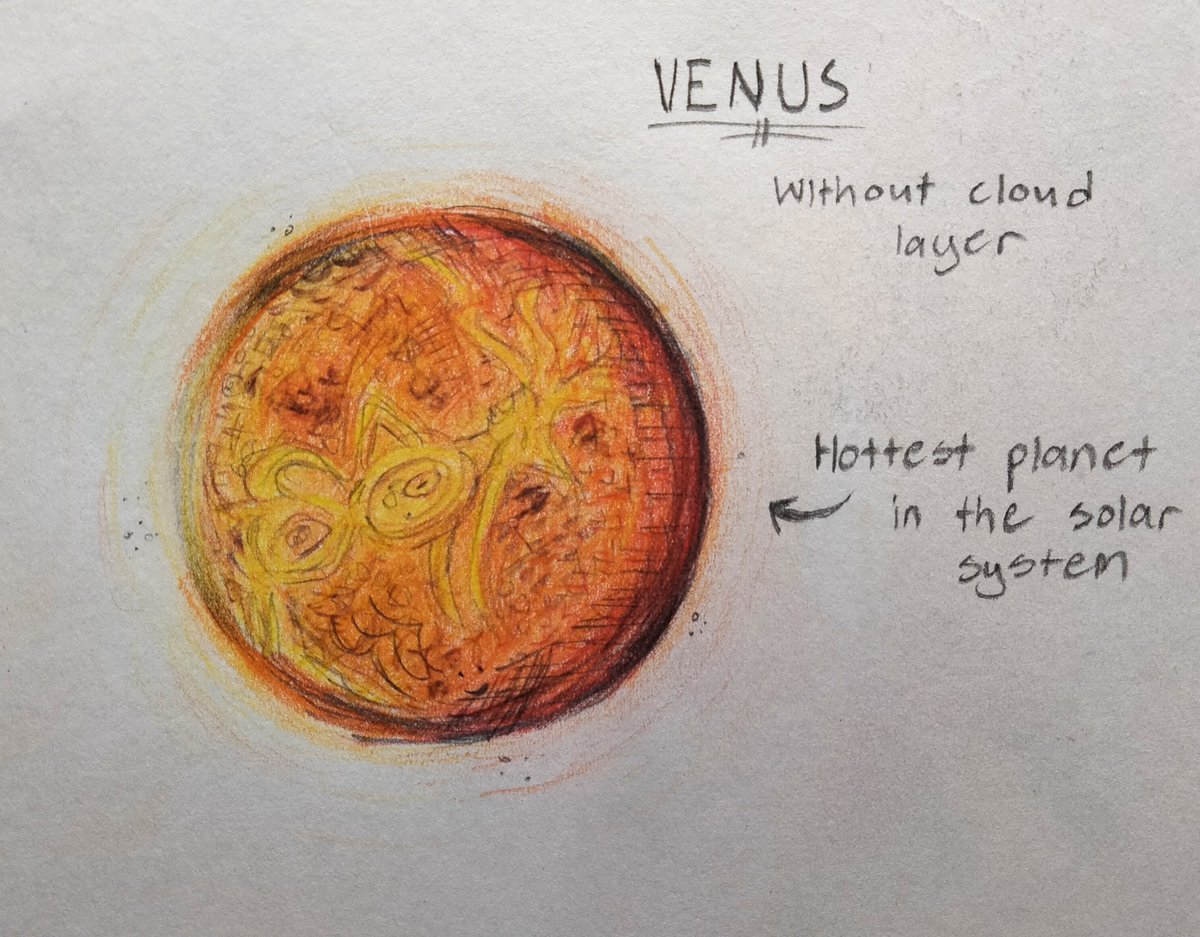 VENUS
Without cloud
layer
Hottest planet
in the solar
system